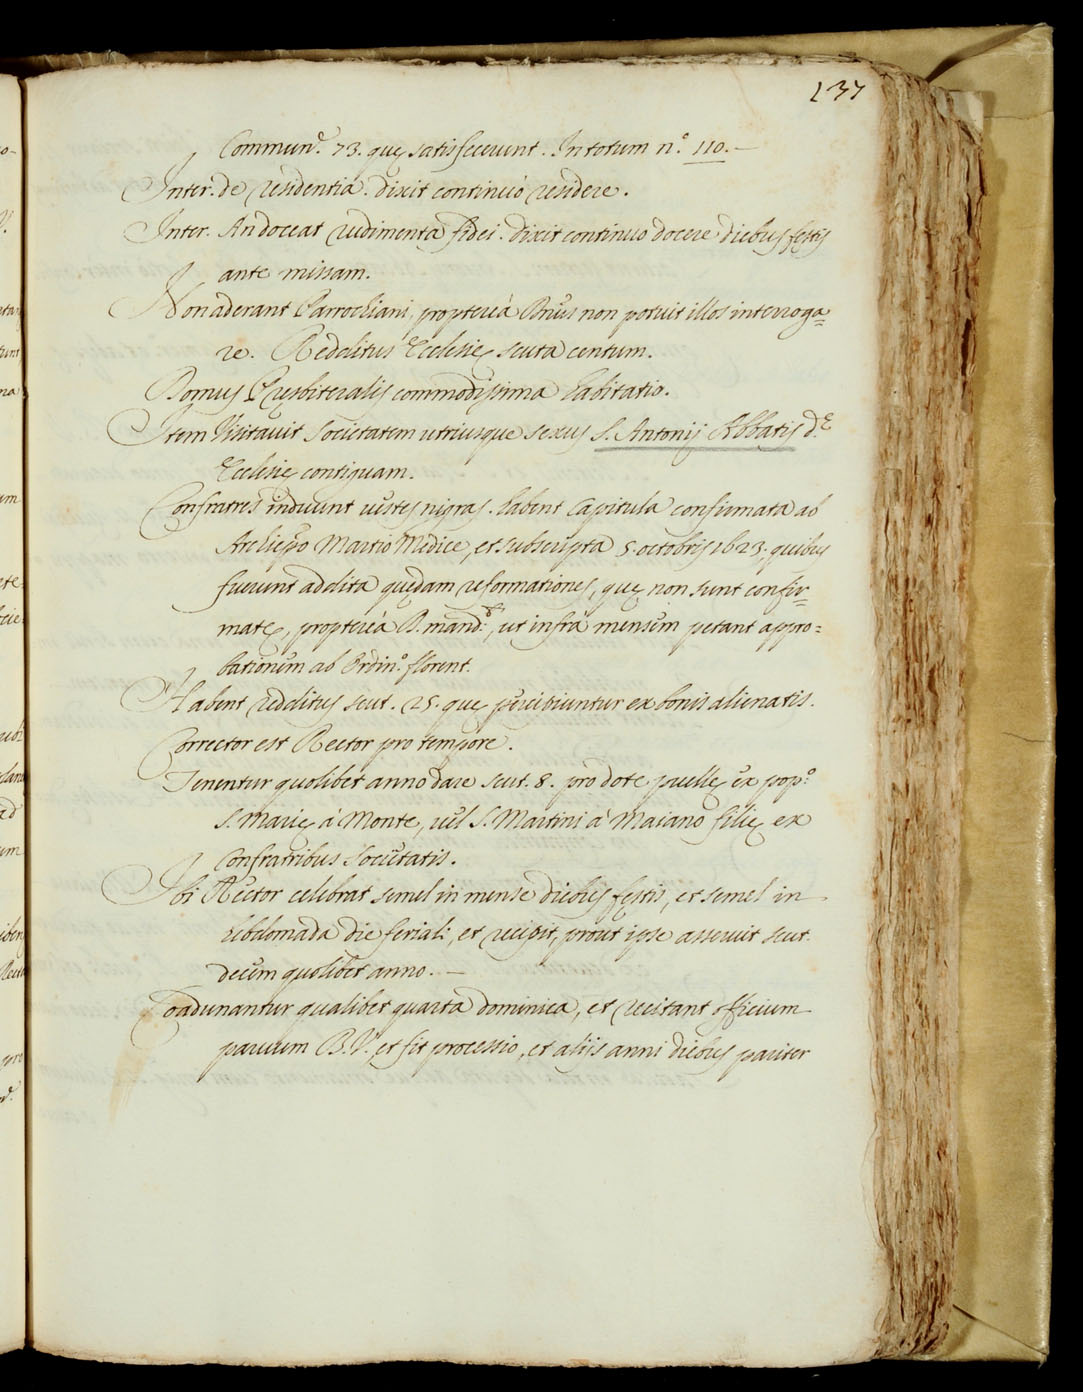 137
Commun.e 73. quę satisfecerunt. In totum n.º 110. —
Inter. de residentia. dixit continuò residere.
Inter. An doceat rudimenta fidei. dixit continuo docere diebus festis
ante missam.
Non aderant Parrochiani, proptereà Dnus non potuit illos interroga=
re. Redditus Ecclesię scuta centum.
Domus Presbiteralis commodissima habitatio.
Item Visitavit Societatem utriusque sexus S. Antonij Abbatis d.ę
Ecclesię contiguam.
Confratres induunt vestes nigras. habent Capitula confirmata ab
Archiepo Martio Medice, et subscripta 5. octobris 1623. quibus
fuerunt addita quędam reformationes, quę non sunt confir=
matę, proptereà D. mand.t, ut infrà mensem petant appro=
bationem ab Ordin.º florent.
Habent redditus scut. 25. quę percibiuntur ex bonis alienatis.
Corrector est Rector pro tempore.
Tenentur quolibet anno dare scut. 8. pro dote puellę ex pop.º
S. Marię à Monte, vel S. Martini à Maiano filię ex
Confratribus Societatis.
Ibi Rector celebrat semel in mense diebus festis, et semel in
hebdomada die feriali, et recipit, prout ipse asseruit scut.
decem quolibet anno. —
Coadunantur qualibet quarta dominica, et recitant officium
parvum B.V. et fit processio, et aliis anni diebus pariter